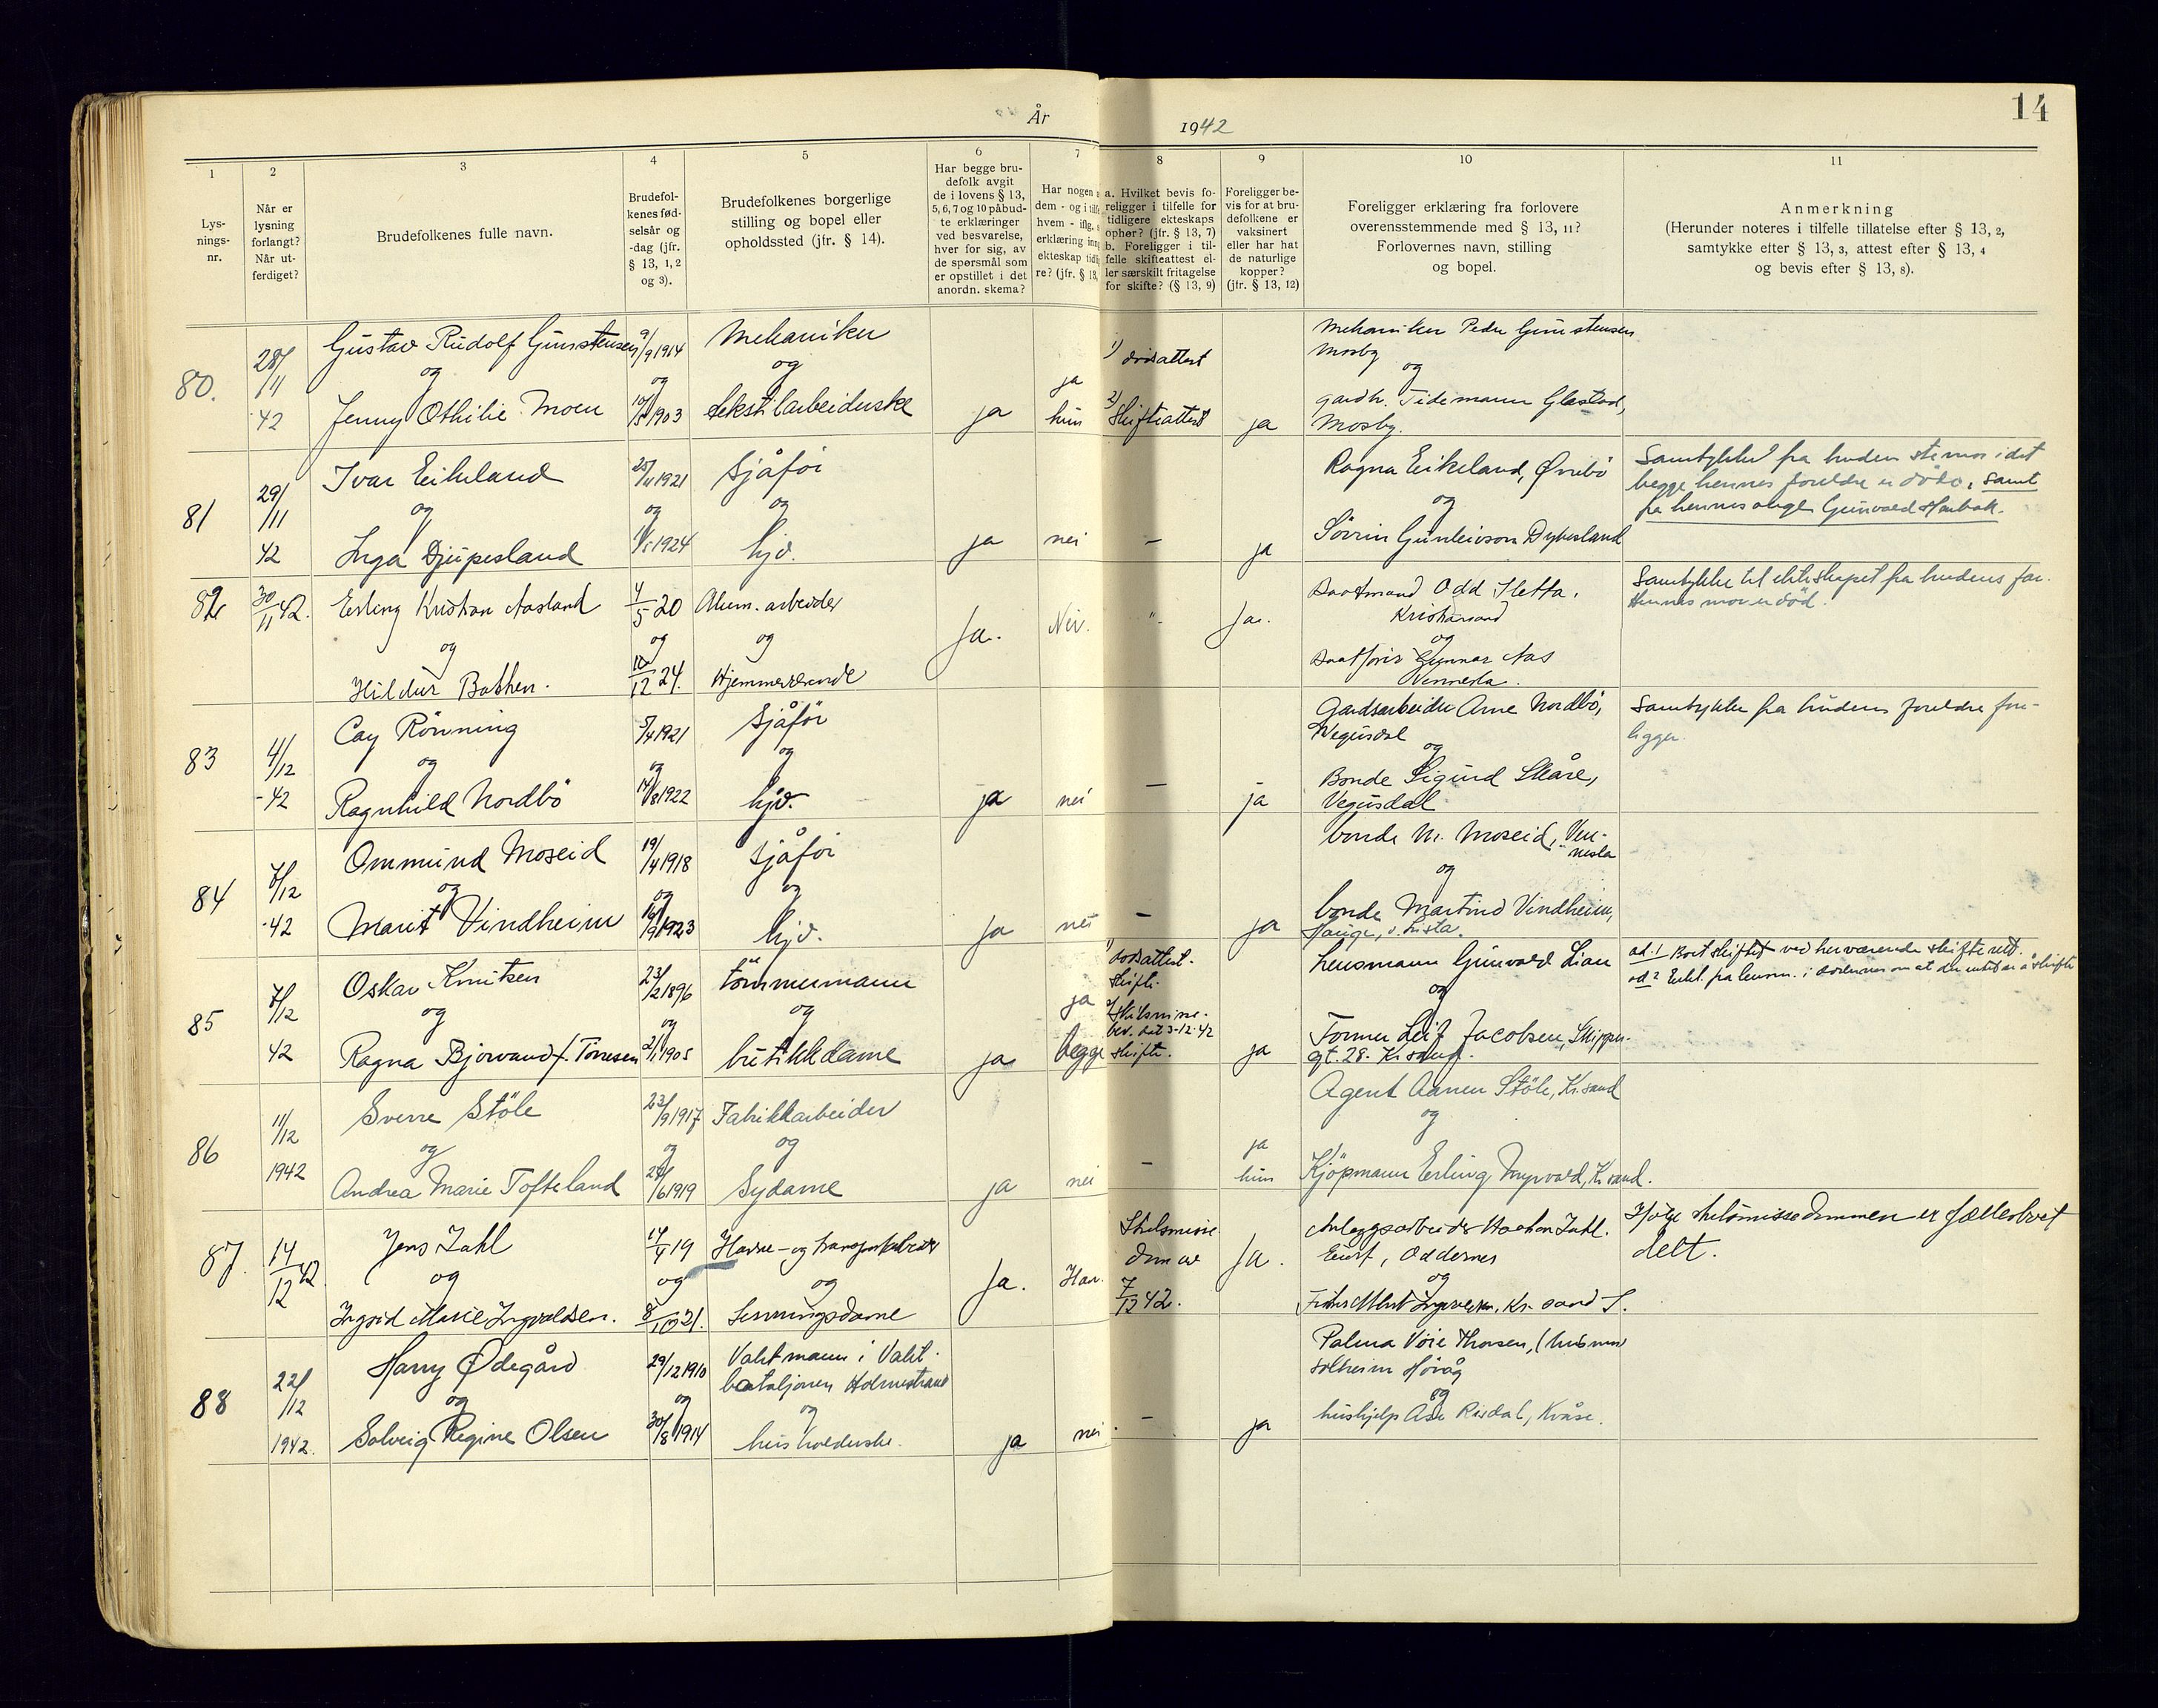 År
1942
14
1
2
3
4
5
6
7
8
9
10
11
Lys-
nings-
nr.
Når er
lysning
forlangt?
Når ut-
ferdiget?
Brudefolkenes fulle navn.
Brudefol-
kenes fød-
selsår og
-dag (jfr.
§ 13, 1, 2
og 3).
Brudefolkenes borgerlige
stilling og bopel eller
opholdssted (jfr. § 14).
Har begge bru-
defolk avgit
de i lovens § 13,
5, 6, 7 og 10 påbud-
te erklæringer
ved besvarelse,
hver for sig, av
de spørsmål som
er opstillet i det
anordn. skema?
Har nogen
dem - og i
hvem - iflg.
erklæring
ekteskap
re? (jfr. § 13,
a. Hvilket bevis fo-
religger i tilfelle for
tidligere ekteskaps
ophør? (jfr. § 13, 7)
b. Foreligger i til-
felle skifteattest el-
ler særskilt fritagelse
for skifte? (§ 13, 9)
Foreligger be-
vis for at bru-
defolkene er
vaksinert
eller har hat
de naturlige
kopper?
(jfr. § 13, 12)
Foreligger erklæring fra forlovere
overensstemmende med § 13, 11?
Forlovernes navn, stilling
og bopel.
Anmerkning
(Herunder noteres i tilfelle tillatelse efter § 13, 2,
samtykke efter § 13, 3, attest efter § 13, 4
og bevis efter § 13, 8).
80.
28/11
42
Gustav Rudolf Gunstensen
og
Jenny Othilie Moen
9/9 1914
og
10/5 1903
Mekaniker
og
tekstilarbeiderske
ja
ja
hun
1) dødsattest
2) Skifteattest
ja
Mekaniker Peder Gunstensen
Mosby
og
gardbr. Tidemann Glastad,
Mosby.
81
29/11
42
Ivar Eikeland
og
Inga Djupesland
25/4 1921
og
1/5 1924
Sjåfør
og
hjv.
ja
nei
-
ja
Ragna Eikeland, Øvrebö
og
Sörrin Gunleivson Dybesland
Samtykke fra brudens stemor idet
begge hennes foreldre er döde, samt
fra hennes verge Gunvald
82
30/11 42.
Erling Kristian Aasland
og
Hildur Bakken.
4/5 20
og
10/12 24.
Alum. arbeider
og
Hjemmeværende
Ja.
Nei.
"
Ja.
Baatmand Odd Sletta,
Kristiansand
og
Gunnar Aas
Vennesla.
Samtykke til ekteskapet fra brudens far.
Hennes mor er död.
83
4/12
-42
Cay Rönning
og
Ragnhild Nordbö
5/4 1921
og
14/8 1922
Sjåfør
og
hjv.
ja
nei
-
ja
Gardsarbeider Arne Nordbö,
Vegusdal
og
Bonde Sigurd Skåre,
Vegusdal
Samtykke fra brudens foreldre fore-
ligger.
84
7/12
-42
Ommund Moseid
og
Marit Vindheim
19/4 1918
og
16/9 1923
Sjåfør
og
hjv.
ja
nei
-
ja
bonde N. Moseid, Ven-
nesla
og
bonde Martind Vindheim,
Hauge, v. Lista.
85
7/12
42
Oskar Knutsen
og
Ragna Bjorvand f. Tönnesen
23/2 1896
og
2/1 1905
tömmermann
og
butikkdame
ja
ja
begge
1) dødsattest.
skifte.
2) Skilsmisse-
bev. dat 3-12-42
skifte.
ja
Lensmann Gunvald Lian
og
Former Leif Jacobsen, Skipper-
gt. 28. Kr.sand.
ad. 1 Bort skiftet ved herværende skifterett.
ad 2 Erkl. fra lensm. i Oddernes om at der intet er å skifte
86
11/12
1942
Sverre Stöle
og
Andrea Marie Tofteland
23/9 1917
og
24/6 1919
Fabrikkarbeider
og
Sydame
ja
nei
-
ja
hun
Agent Aanen Stöle, Kr.sand
og
Kjöpmann Erling Myrvold, Kr.sand.
87.
14/12 42
Jens Dahl
og
Ingrid Marie Ingvaldsen.
14/4 19
og
8/10 21.
Havne- og transportarbeider
og
Serveringsdame
Ja.
Han.
Skilsmisse
dom av
7/12 42.
Ja.
Anleggsarbeider Haakon Dahl.
Eeinst, Oddernes
og
Ingvaldsen, Kr. sand S.
Ifølge skilsmissedommen er fællesboet
delt.
88
22/12
1942.
Harry Ødegård
og
Solveig Regine Olsen
29/12 1910
og
30/8 1914
Vaktmann i Vakt-
bataljonen Holmestrand
og
husholderske.
ja
nei
-
ja
Palma Vöie Thorsen, (husmor
Solheim Hövåg
og
hushjelp Åse Risdal, Kvåse.